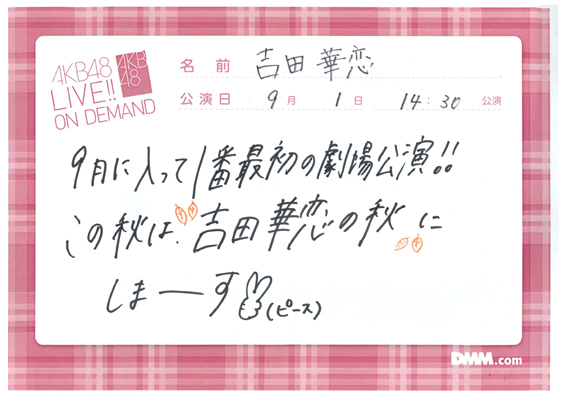 AKB48
LIVE!!
ON DEMAND
AKB
48
名前 吉田 華恋
公演日 9月 1日 14:30 公演
9月に入って1番最初の劇場公演!!
この秋は、吉田華恋の秋に
しまーす(ピース)
DMM.com